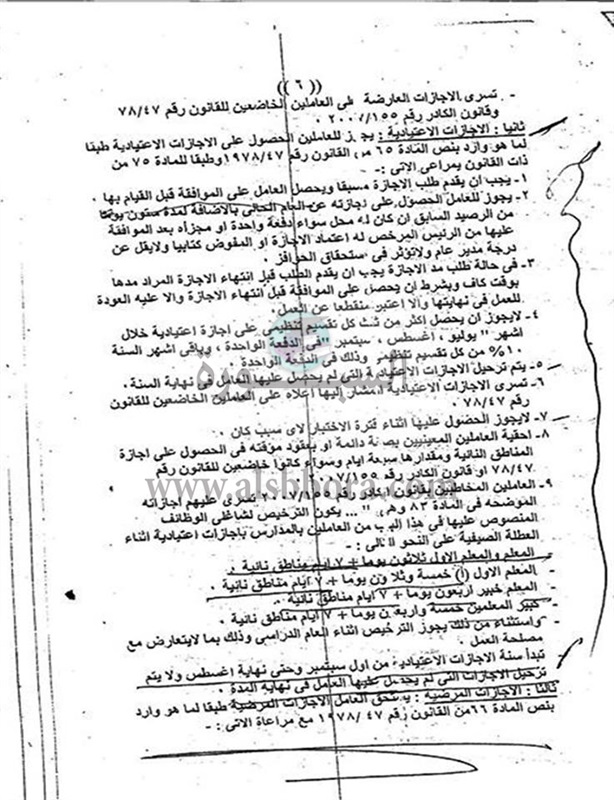 (( ٦ ))
- تسرى الاجازات العارضة على العاملين الخاضعين للقانون رقم ٧٨/٤٧
وقانون الكادر رقم ٢٠٠٧/١٥٥ .
ثانيا : الاجازات الاعتيادية : يجوز للعاملين الحصول على الاجازات الاعتيادية طبقا
لما هو وارد بنص المادة ٦٥ من القانون رقم ١٩٧٨/٤٧ وطبقا للمادة ٧٥ من
ذات القانون يمراعى الاتى :-
١- يجب ان يقدم طلب الاجازة مسبقا ويحصل العامل على الموافقة قبل القيام بها .
٢- يجوز للعامل الحصول على اجازته عن العام الحالى بالاضافة لمدة ستون يوما
من الرصيد السابق ان كان له محل سواء دفعة واحدة او مجزأه بعد الموافقة
عليها من الرئيس المرخص له اعتماد الاجازة او المفوض كتابيا ولايقل عن
درجة مدير عام ولاتؤثر فى استحقاق الحوافز .
٣- فى حالة طلب مد الاجازة يجب ان يقدم الطلب قبل انتهاء الاجازة المراد مدها
بوقت كاف وبشرط ان يحصل على الموافقة قبل انتهاء الاجازة والا عليه العودة
للعمل فى نهايتها والا اعتبر منقطعا عن العمل .
٤- لايجوز ان يحصل اكثر من ثلث كل تقسيم تنظيمى على اجازة اعتيادية خلال
اشهر " يوليو ، اغسطس ، سبتمبر " فى الدفعة الواحدة ، وباقى اشهر السنة
١٠% من كل تقسيم تنظيمى وذلك فى الدفعة الواحدة .
٥- يتم ترحيل الاجازات الاعتيادية التى لم يحصل عليها العامل فى نهاية السنة .
٦- تسرى الاجازات الاعتيادية المشار إليها اعلاه على العاملين الخاضعين للقانون
رقم ٧٨/٤٧ .
٧- لايجوز الحصول عليها اثناء فترة الاختبار لاى سبب كان .
٨- احقية العاملين المعينيين بصفة دائمة او بعقود مؤقته فى الحصول على اجازة
المناطق النائية ومقدارها سبعة ايام وسواء كانوا خاضعين للقانون رقم
٧٨/٤٧ او قانون الكادر رقم ٢٠٠٧/١٥٥ .
www.alsbbora.com
٩- العاملين المخاطبين بقانون الكادر رقم ٢٠٠٧/١٥٥ تسرى عليهم اجازاته
الموضحه فى المادة ٨٣ وهى " ... يكون الترخيص لشاغلى الوظائف
المنصوص عليها فى هذا الباب من العاملين بالمدارس باجازات اعتيادية اثناء
العطلة الصيفية على النحو التالى :-
المعلم والمعلم الاول ثلاثون يوما + ٧ ايام مناطق نائية .
- المعلم الاول (أ) خمسة وثلاثون يوما + ٧ ايام مناطق نائية .
- المعلم خبير اربعون يوما + ٧ ايام مناطق نائية .
- كبير المعلمين خمسة واربعون يوما + ٧ ايام مناطق نائية .
- واستثناء من ذلك يجوز الترخيص اثناء العام الدراسى وذلك بما لايتعارض مع
مصلحة العمل .
- تبدأ سنة الاجازات الاعتيادية من اول سبتمبر وحتى نهاية اغسطس ولا يتم
ترحيل الاجازات التى لم يحصل عليها العامل فى نهاية المدة .
ثالثا : الاجازات المرضية : يستحق العامل الاجازات المرضية طبقا لما هو وارد
بنص المادة ٦٦ من القانون رقم ٤٧ /١٩٧٨ مع مراعاة الاتى :-